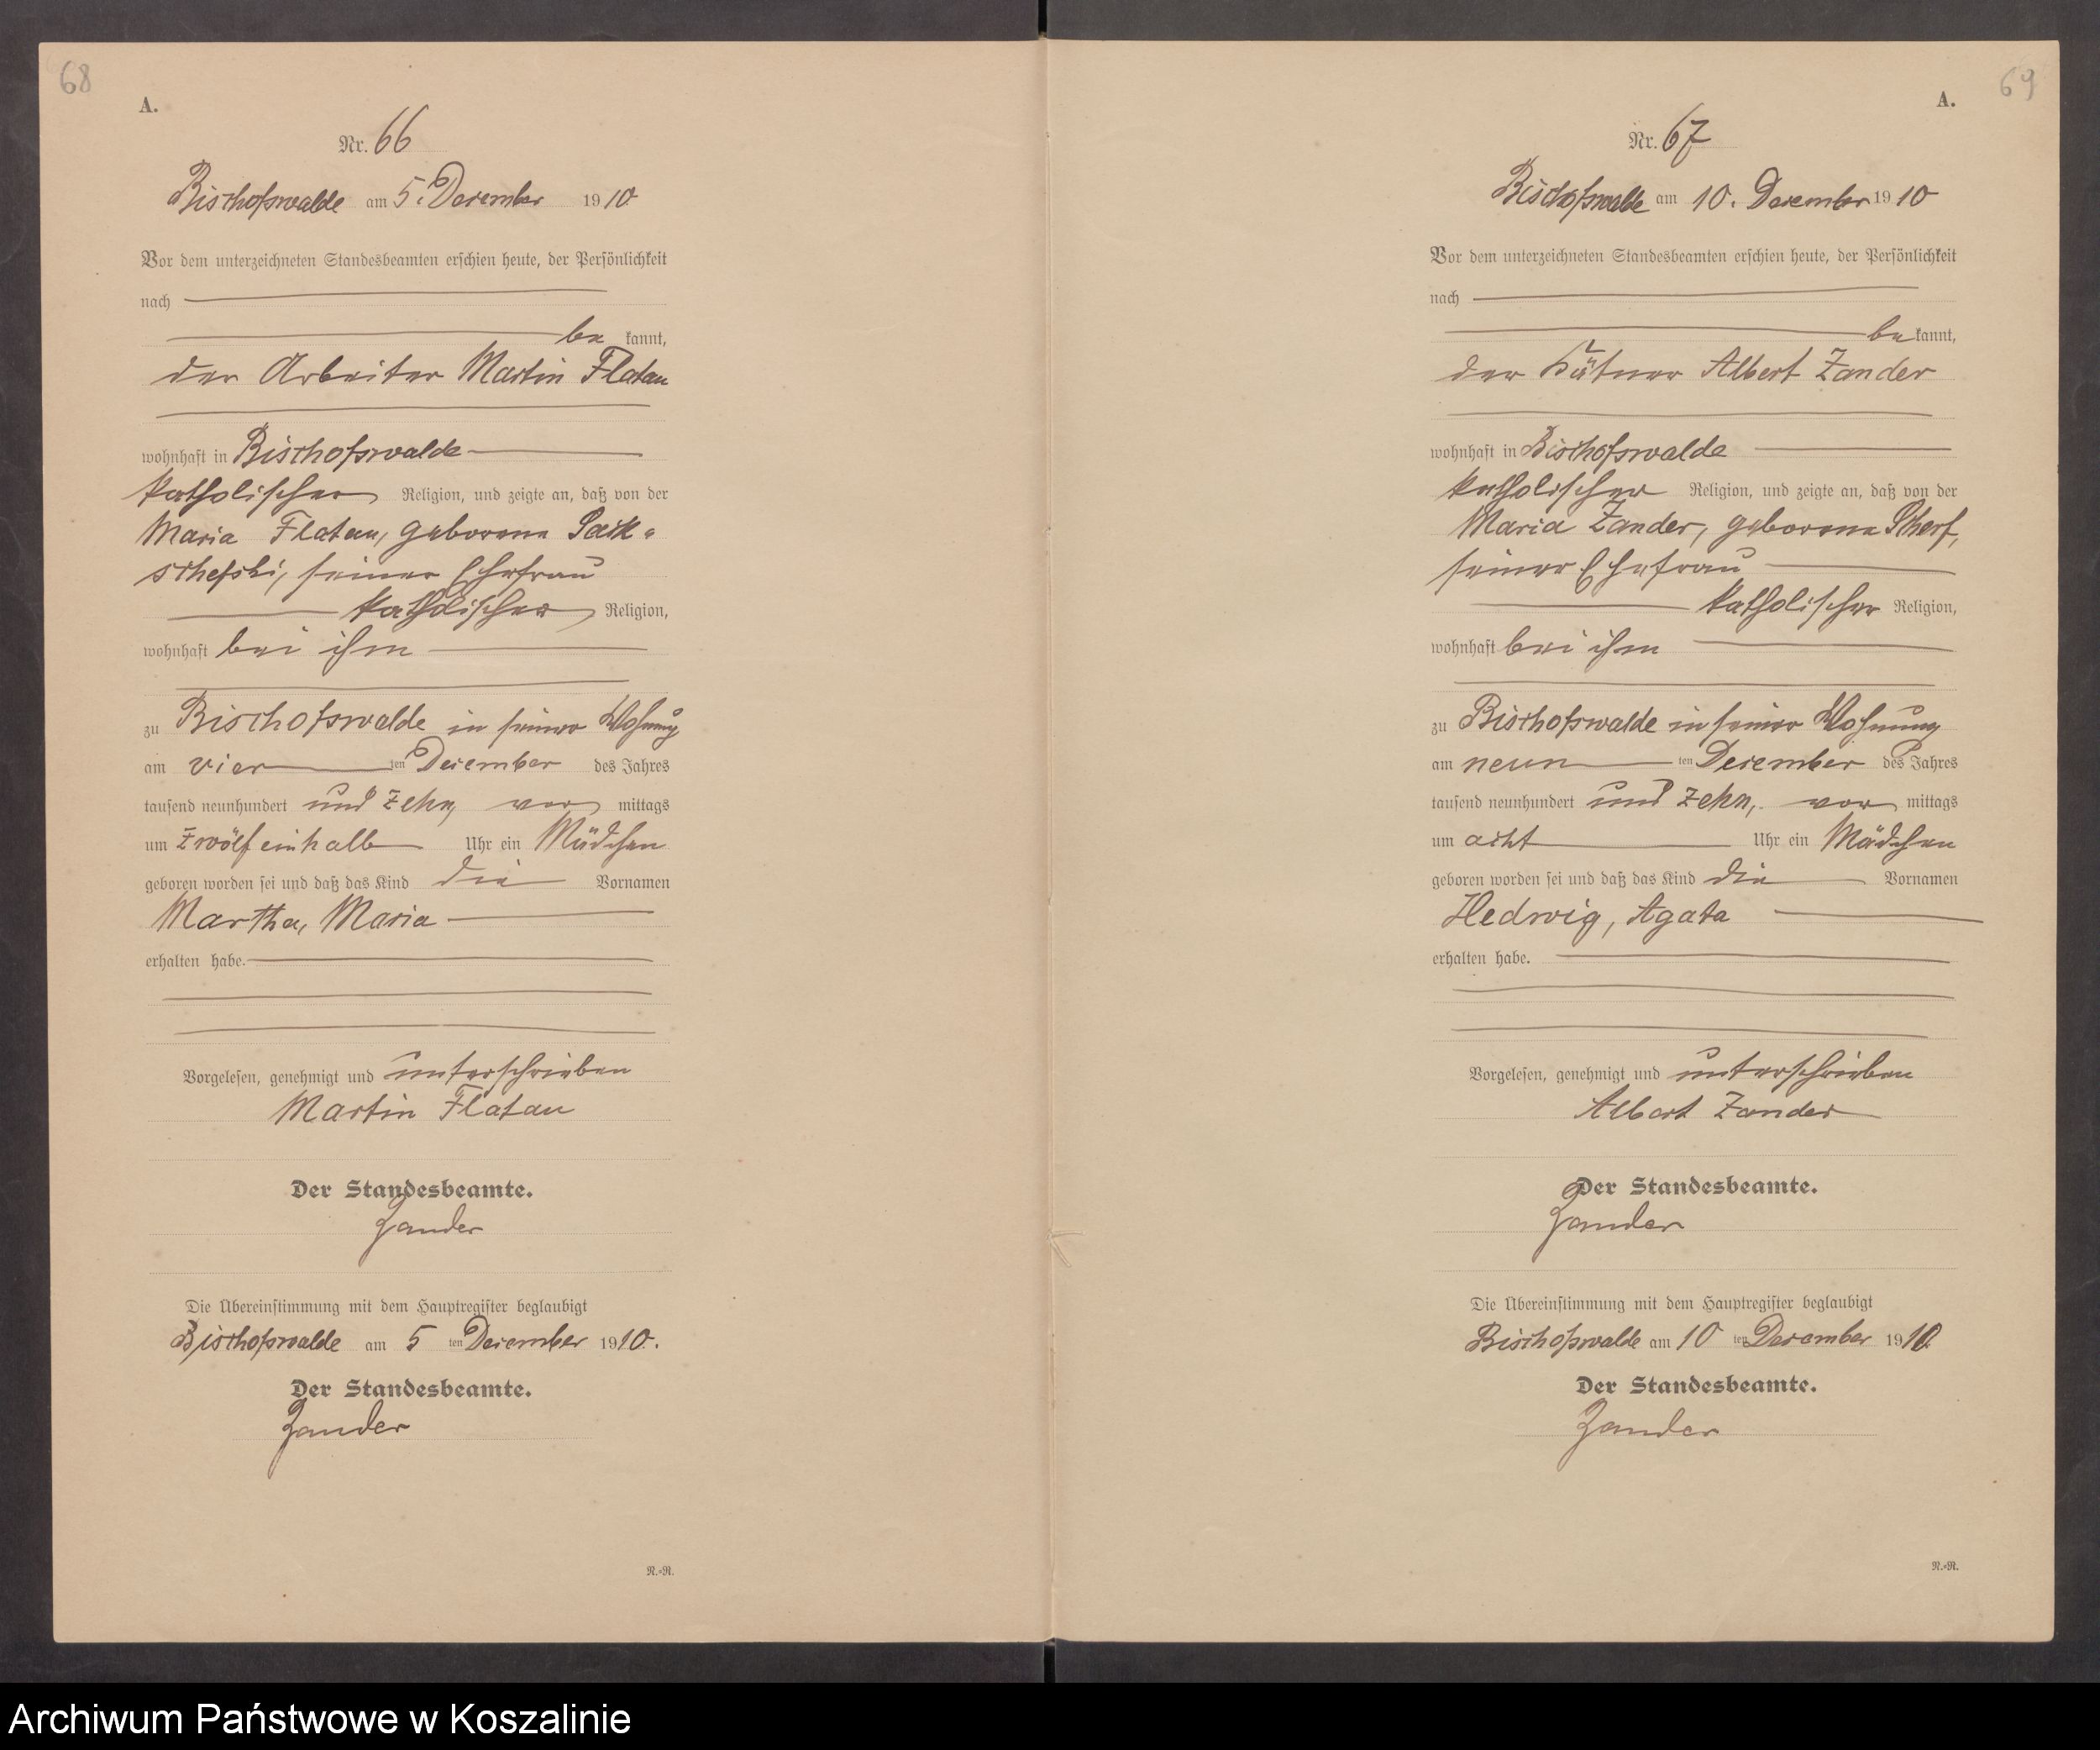 68
A.
Nr. 66
Bischofswalde am 5. Dezember 1910
Vor dem unterzeichneten Standesbeamten erschien heute, der Persönlichkeit
nach
be kannt,
der Arbeiter Martin Flatau
wohnhaft in Bischofswalde
katholischer Religion, und zeigte an, daß von der
Maria Flatau, geborene
seiner Ehefrau
katholischer Religion,
wohnhaft bei ihm
zu Bischofswalde in seiner Wohnung
am vier ten Dezember des Jahres
tausend neunhundert und zehn, vor mittags
um zwölfeinhalb Uhr ein Mädchen
geboren worden sei und daß das Kind die Vornamen
Martha, Maria
erhalten habe.
Vorgelesen, genehmigt und unterschrieben
Martin Flatau
Der Standesbeamte.
Zander
Die Übereinstimmung mit dem Hauptregister beglaubigt
Bischofswalde am 5 ten Dezember 1910.
Der Standesbeamte.
Zander
N.=N.
69
A.
Nr. 67
Bischofswalde am 10. Dezember 1910
Vor dem unterzeichneten Standesbeamten erschien heute, der Persönlichkeit
nach
be kannt,
der Kätner Albert Zander
wohnhaft in Bischofswalde
katholischer Religion, und zeigte an, daß von der
Maria Zander, geborene Scherf,
seiner Ehefrau
katholischer Religion,
wohnhaft bei ihm
zu Bischofswalde in seiner Wohnung
am neun ten Dezember des Jahres
tausend neunhundert und zehn, vor mittags
um acht Uhr ein Mädchen
geboren worden sei und daß das Kind die Vornamen
Hedwig, Agata
erhalten habe.
Vorgelesen, genehmigt und unterschrieben
Albert Zander
Der Standesbeamte.
Zander
Die Übereinstimmung mit dem Hauptregister beglaubigt
Bischofswalde am 10 ten Dezember 1910.
Der Standesbeamte.
Zander
N.=N.
Archiwum Państwowe w Koszalinie